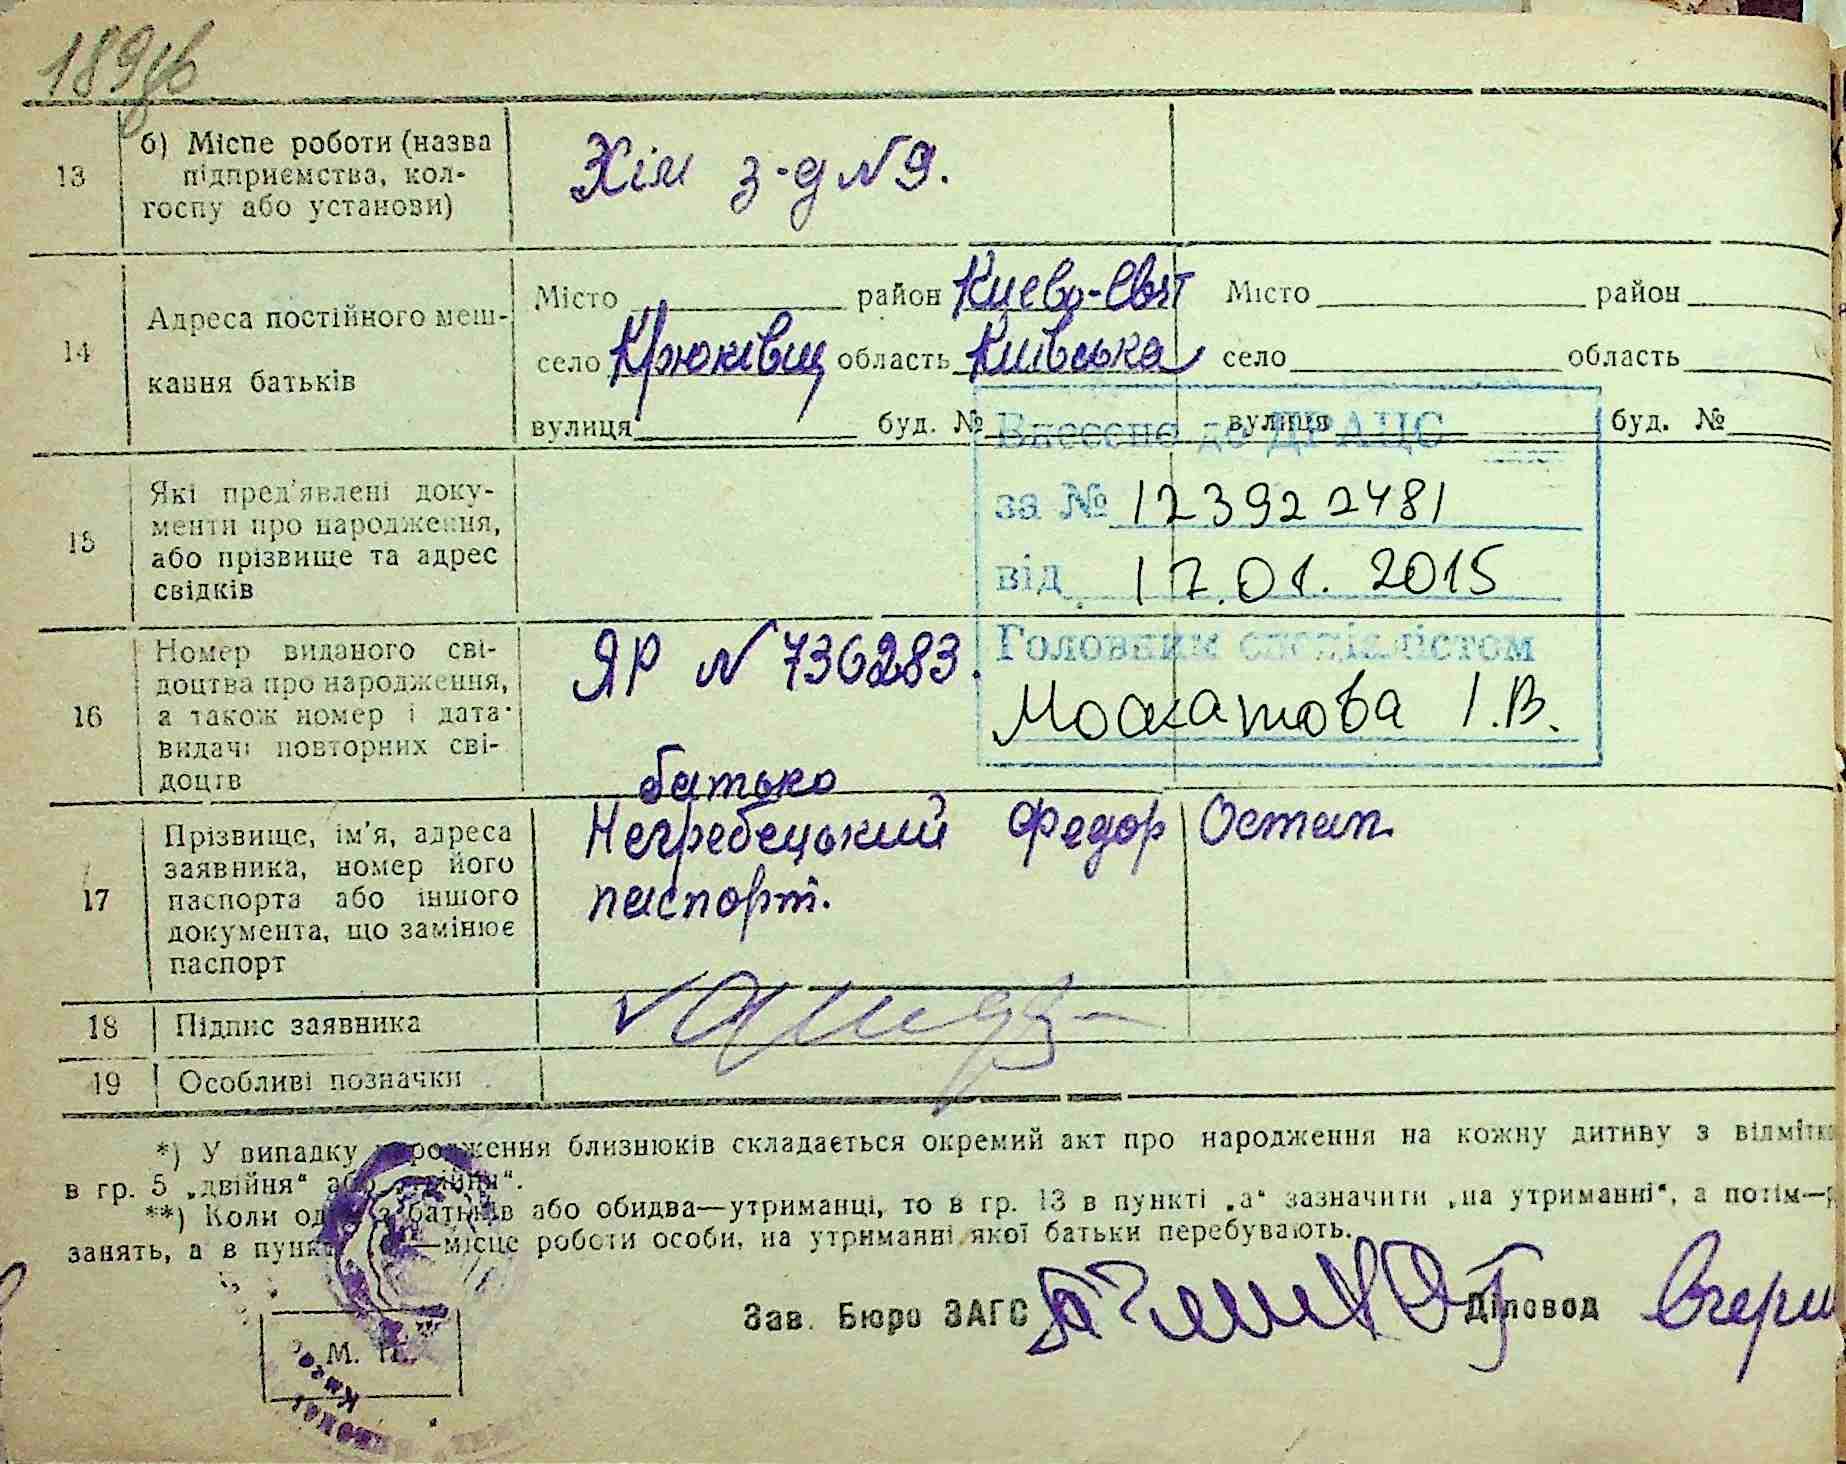 189зв
13
б) Місце роботи (назва
підприємства, кол-
госпу або установи)
Хім з-д № 9.
14
Адреса постійного меш-
кання батьків
Місто район Києво-Свят
село Крюківщ область Київська
вулиця буд. №
Місто район
село область
вулиця буд. №
Внесено до ДРАЦС
за № 123922481
від 17.01.2015
Головним спеціалістом
Москатова І.В.
15
Які пред'явлені доку-
менти про народження,
або прізвище та адрес
свідків
16
Номер виданого сві-
доцтва про народження,
а також номер і дата
видачі повторних сві-
доцтв
ЯР № 736283.
17
Прізвище, ім'я, адреса
заявника, номер його
паспорта або іншого
документа, що замінює
паспорт
батько
Негребецький Федор Остап.
паспорт.
18
Підпис заявника
19
Особливі позначки
*) У випадку народження близнюків складається окремий акт про народження на кожну дитину з відмітк
в гр. 5 „двійня“ або „трійня“.
**) Коли один з батьків або обидва—утриманці, то в гр. 13 в пункті „а“ зазначити „на утриманні“, а потім—р
занять, а в пункті —місце роботи особи, на утриманні якої батьки перебувають.
Зав. Бюро ЗАГС
Діловод
М. П.